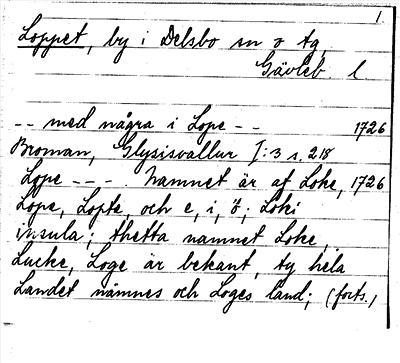 1
Loppet, by i Delsbo sn o tg,
Gävleb l.
-- med några i Lope -- 1726
Broman, Glysisvallur I:3 s. 218
Lope --- . Namnet är af Loke, 1726
Lope, Lopte, och e, i, ö; Loki
insula; thetta namnet Loke,
Lucke, Loge är bekant, ty hela
Landet nämnes och Loges land; (forts.)